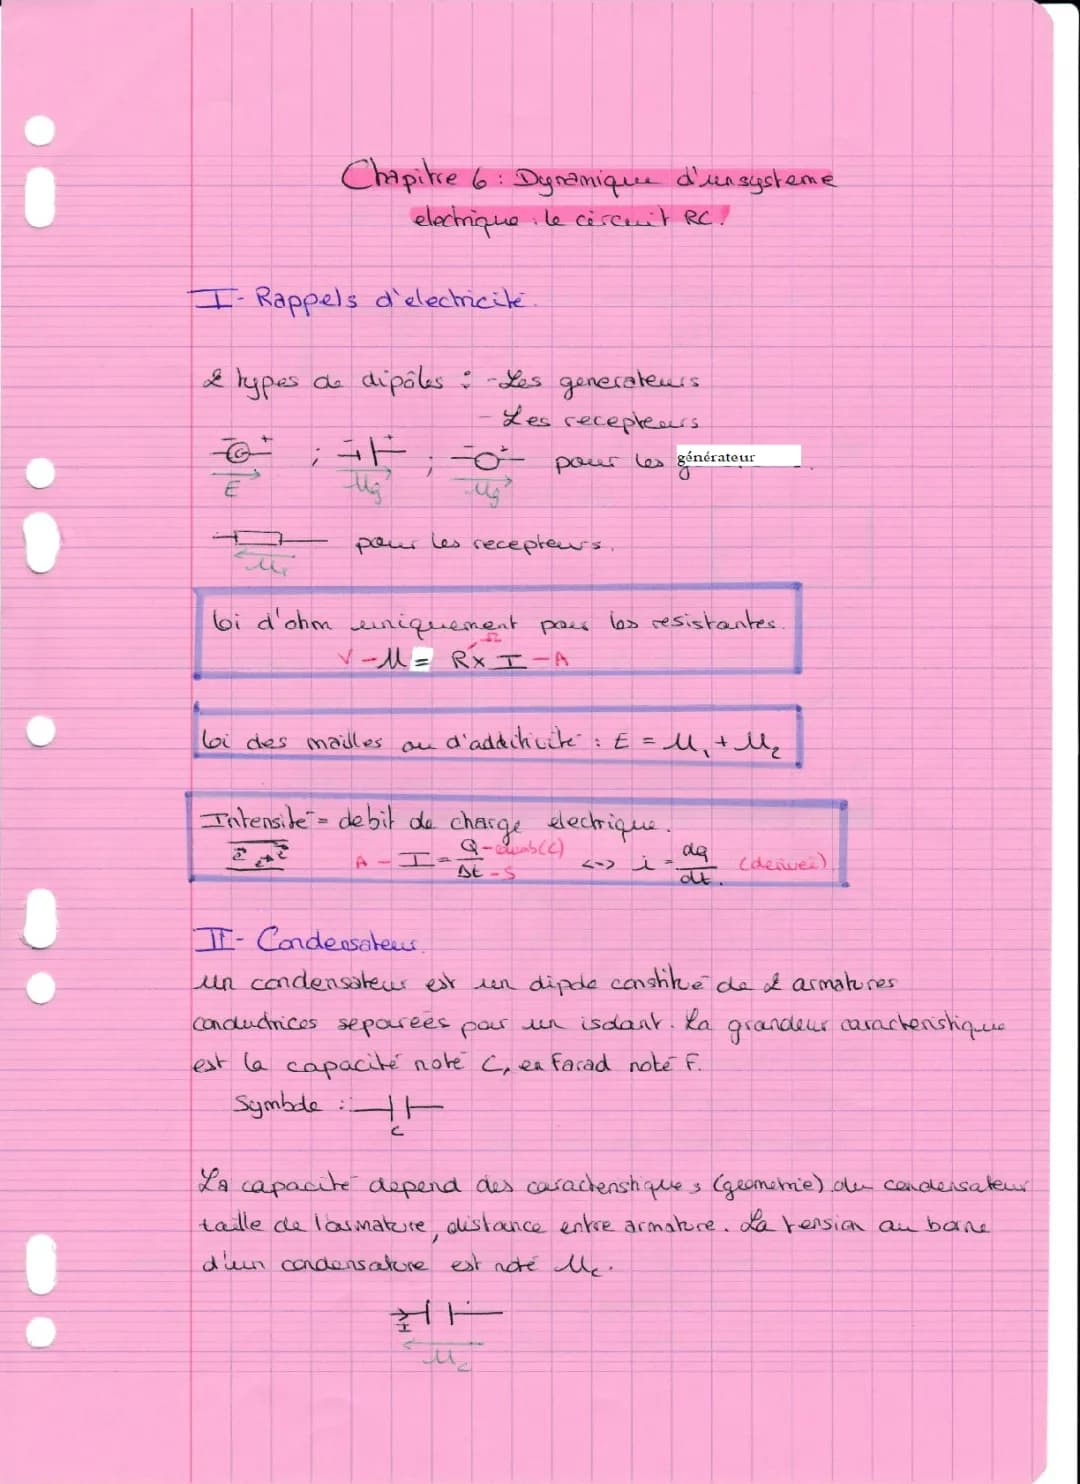 Chapitre 6 : Dynamique d'un systeme
electrique : le circuit RC.
I- Rappels d'electricité.
2 types de dipôles : - Les generateurs
- Les recepteurs
G - + ; - + ; - + pour les générateur
E Ug Ug
pour les recepteurs.
Ur
Loi d'ohm uniquement pour les resistantes.
Ω
V - U = R x I - A
Loi des mailles ou d'addititvité : E = U₁ + U₂
Intensité = debit de charge electrique.
A - I = Q/Δt - S <-> i = dq/dt. (derivée)
II- Condensateur.
un condensateur est un dipole constitué de 2 armatures
conductrices separées par un isolant. La grandeur caracteristique
est la capacité noté C, en Farad noté F.
Symbole :
C
La capacité depend des caracteristiques (geometrie) du condensateur
taille de l'armature, distance entre armature. La tension au borne
d'un condensature est noté Uc.
I
Uc